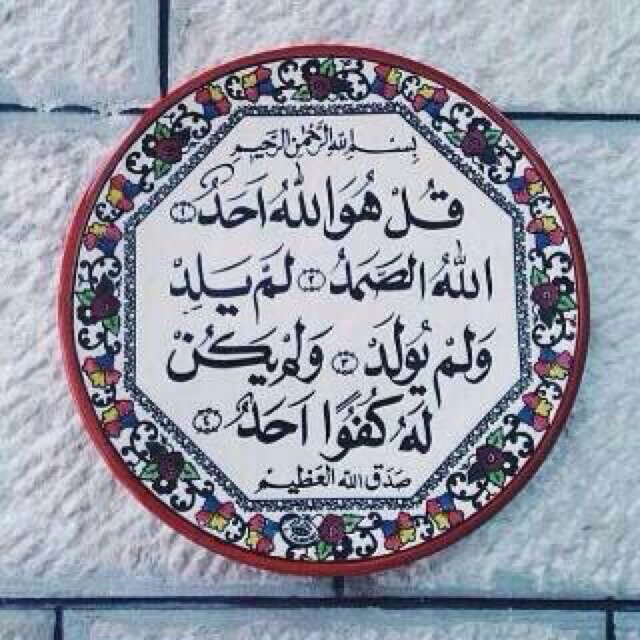 بِسْمِ اللهِ الرَّحْمٰنِ الرَّحِيمِ
قُلْ هُوَ اللهُ اَحَدٌ ١
اللهُ الصَّمَدُ ٢ لَمْ يَلِدْ
وَلَمْ يُولَدْ ٣ وَلَمْ يَكُنْ
لَهُ كُفُوًا اَحَدٌ ٤
صَدَقَ اللهُ العَظِيمُ